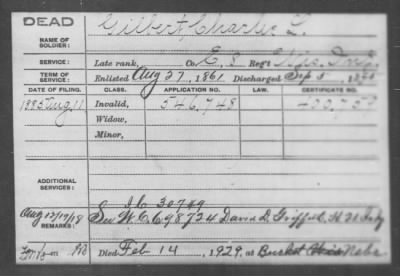 DEAD
NAME OF SOLDIER: Gilbert, Charles L.
SERVICE: Late rank, Co. E, 8 Reg't Wis. Inf.
TERM OF SERVICE: Enlisted Aug 27, 1861 Discharged Sep 5, 1865
DATE OF FILING. CLASS. APPLICATION NO. LAW. CERTIFICATE NO.
1885 Aug 11 Invalid, 546,748
Widow,
Minor,
ADDITIONAL SERVICES:
30749
Aug 12/19/18 See W.C. 698724 David D. H 21
REMARKS:
Died Feb 14, 1929, at Nebr